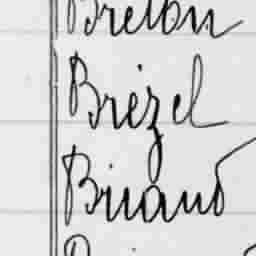 Breton
Brézel
Briand